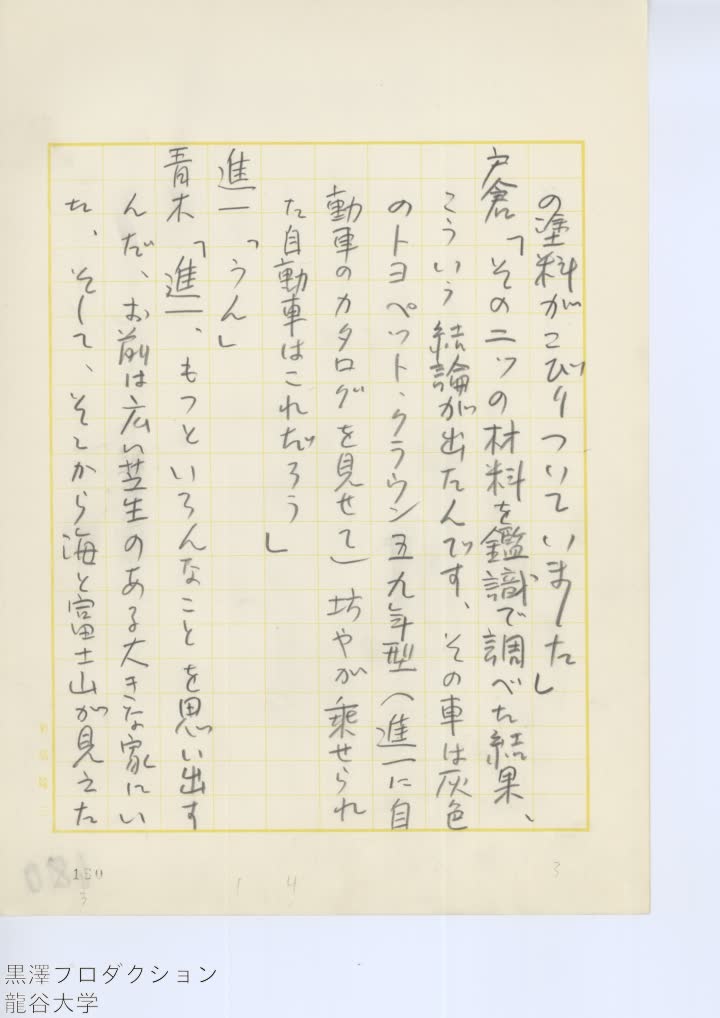 の塗料がこびりついていました」
戸倉「その二ツの材料を鑑識で調べた結果、
こういう結論が出たんです、その車は灰色
のトヨペット・クラウン五九年型（進一に自
動車のカタログを見せて）坊やが乗せられ
た自動車はこれだろう」
進一「うん」
青木「進一、もっといろんなことを思い出す
んだ、お前は広い芝生のある大きな家にい
た、そして、そこから海と富士山が見えた
180
3
1
4
3
黒澤プロダクション
龍谷大学